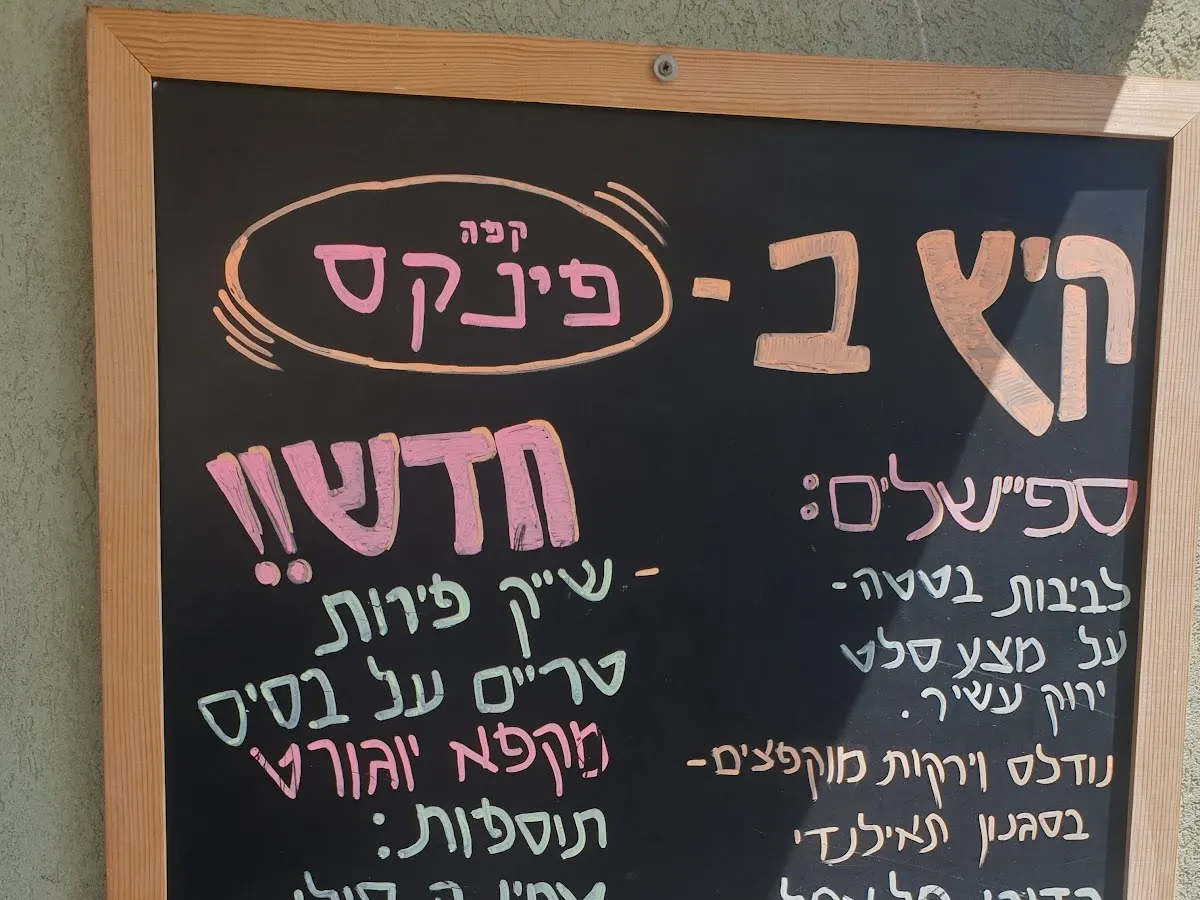 קיץ ב-
קפה
פינקס
ספיישלים:
לביבות בטטה-
על מצע סלט
ירוק עשיר.
נודלס וירקות מוקפצים-
בסגנון תאילנדי
חדש!!
- שייק פירות
טריים על בסיס
מקפא יוגורט
תוספות: